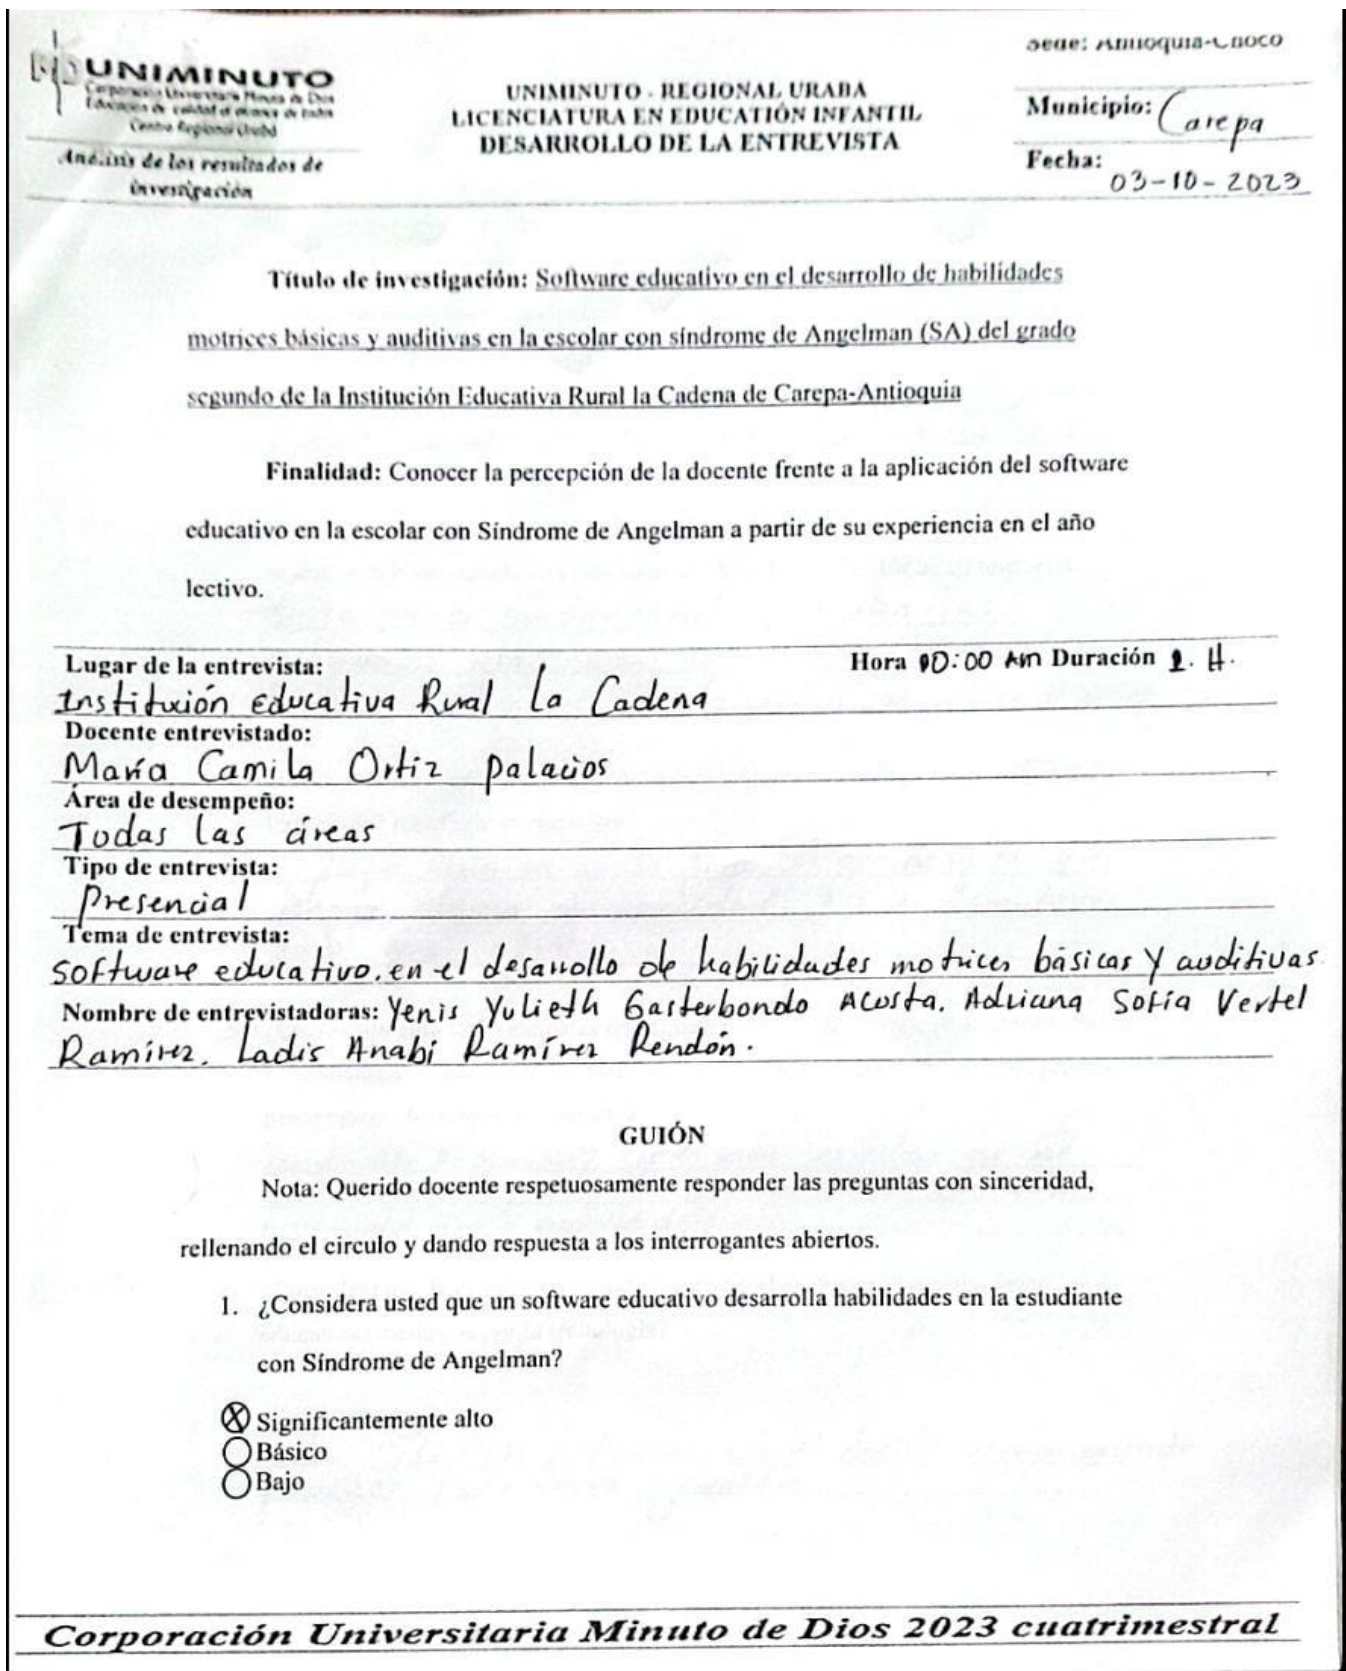 Sede: Antioquia-Choco
UNIMINUTO
Corporación Universitaria Minuto de Dios
Educación de calidad al alcance de todos
Centro Regional Urabá
Análisis de los resultados de
investigación
UNIMINUTO - REGIONAL URABA
LICENCIATURA EN EDUCATIÓN INFANTIL
DESARROLLO DE LA ENTREVISTA
Municipio: Carepa
Fecha:
03-10-2023
Título de investigación: Software educativo en el desarrollo de habilidades
motrices básicas y auditivas en la escolar con síndrome de Angelman (SA) del grado
segundo de la Institución Educativa Rural la Cadena de Carepa-Antioquia
Finalidad: Conocer la percepción de la docente frente a la aplicación del software
educativo en la escolar con Síndrome de Angelman a partir de su experiencia en el año
lectivo.
Lugar de la entrevista: Hora 10:00 Am Duración 1. H.
Institución Educativa Rural La Cadena
Docente entrevistado:
María Camila Ortiz palacios
Área de desempeño:
Todas las áreas
Tipo de entrevista:
Presencial
Tema de entrevista:
Software educativo. en el desarrollo de habilidades motrices básicas y auditivas.
Nombre de entrevistadoras: Yenis Yulieth Gasterbondo Acosta. Adriana Sofía Vertel
Ramírez. Ladis Anabí Ramírez Rendón.
GUIÓN
Nota: Querido docente respetuosamente responder las preguntas con sinceridad,
rellenando el circulo y dando respuesta a los interrogantes abiertos.
1. ¿Considera usted que un software educativo desarrolla habilidades en la estudiante
con Síndrome de Angelman?
Significantemente alto
Básico
Bajo
Corporación Universitaria Minuto de Dios 2023 cuatrimestral